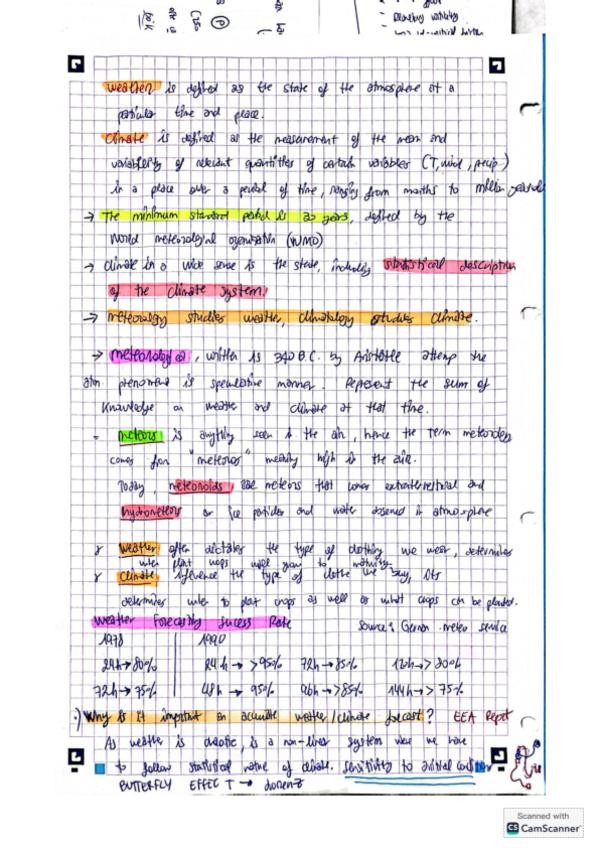 weather is defined as the state of the atmosphere at a
particular time and place.
climate is defined as the measurement of the mean and
variability of relevant quantities of certain variables (T, wind, precip)
in a place over a period of time, ranging from months to million
→ The minimum standard period is 30 years, defined by the
World meteorological organisation (WMO)
→ climate in a wide sense is the state, including statistical description
of the climate system.
→ meteorology studies weather, climatology studies climate.
→ meteorologica, written is 340 B.C. by Aristotle attemp the
atm phenomena is speculative manner. Represent the sum of
knowledge on weather and climate at that time.
meteors is anything seen in the air, hence the term meteorology
comes from "meteoros" meaning high in the air.
Today, meteoroids are meteors that comes extraterrestrial and
hydrometeors or ice particles and water observed in atmosphere
weather often dictates the type of clothing we wear, determines
when plant crops will grow to maturing.
climate influence the type of clothe we buy, its
determines when to plant crops as well as what crops can be planted.
Weather Forecasting Sucess Rate
Source: German meteo service
1978 1990
24h → 80% 24h → >95% 72h → 85% 120h → > 80%
72h → 75% 48h → 95% 96h → >85% 144h → > 75%
Why is it important an accurate weather/climate forecast? EEA Report
As weather is chaotic, is a non-linear system were we have
to follow statistical nature of climate. sensitivity to initial
BUTTERFLY EFFECT → Lorenz
Scanned with
CS CamScanner